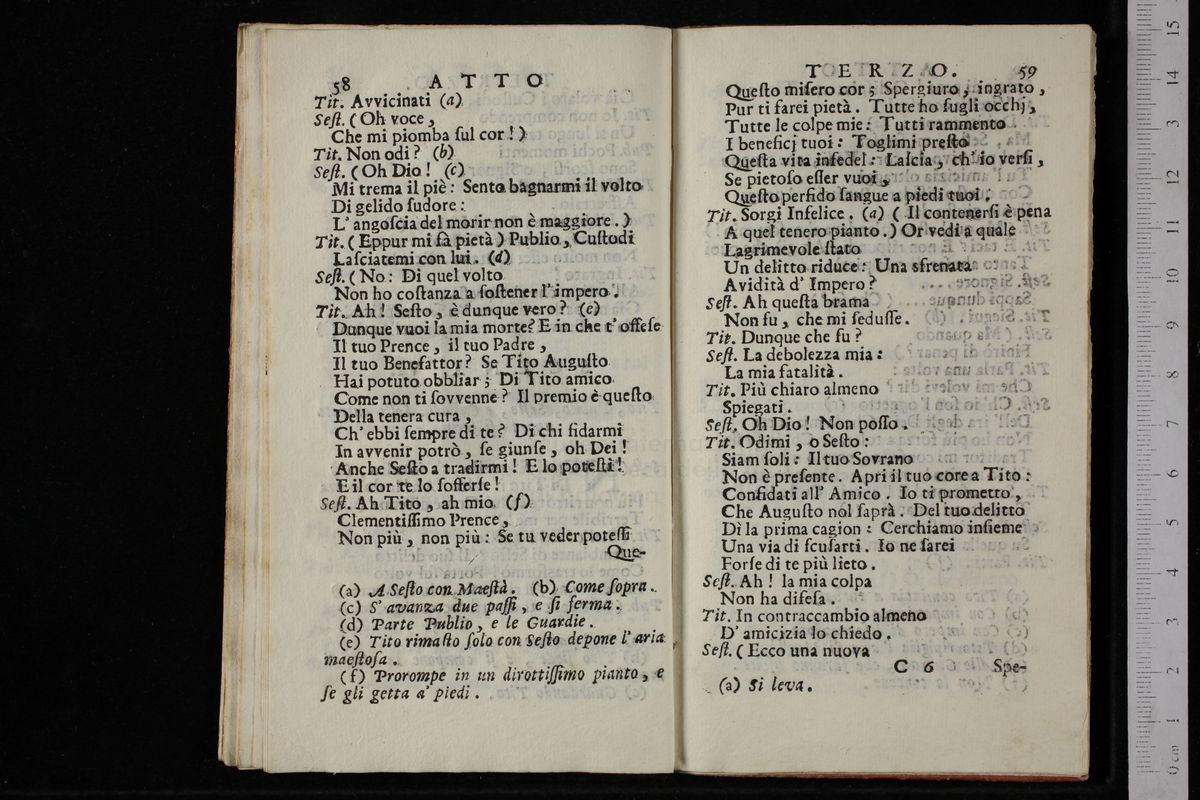 58 ATTO
Tit. Avvicinati (a)
Seſt. (Oh voce,
Che mi piomba ſul cor!)
Tit. Non odi? (b)
Seſt. (Oh Dio! (c)
Mi trema il piè: Sento bagnarmi il volto
Di gelido ſudore:
L' angoſcia del morir non è maggiore.)
Tit. (Eppur mi fà pietà) Publio, Cuſtodi
Laſciatemi con lui. (d)
Seſt. (No: Di quel volto
Non ho coſtanza a ſoſtener l' impero.
Tit. Ah! Seſto, è dunque vero? (e)
Dunque vuoi la mia morte? E in che t' offeſe
Il tuo Prence, il tuo Padre,
Il tuo Benefattor? Se Tito Auguſto
Hai potuto obbliar; Di Tito amico
Come non ti ſovvenne? Il premio è queſto
Della tenera cura,
Ch' ebbi ſempre di te? Di chi fidarmi
In avvenir potrò, ſe giunſe, oh Dei!
Anche Seſto a tradirmi! E lo poteſti!
E il cor te lo ſofferſe!
Seſt. Ah Tito, ah mio (f)
Clementiſſimo Prence,
Non più, non più: Se tu veder poteſſi
Que-
(a) A Seſto con Maeſtà. (b) Come ſopra.
(c) S' avanza due paſſi, e ſi ferma.
(d) Parte Publio, e le Guardie.
(e) Tito rimaſto ſolo con Seſto depone l' aria
maeſtoſa.
(f) Prorompe in un dirottiſſimo pianto, e
ſe gli getta a' piedi.
TERZO. 59
Queſto miſero cor; Spergiuro, ingrato,
Pur ti farei pietà. Tutte ho ſugli occhj,
Tutte le colpe mie: Tutti rammento
I beneficj tuoi: Toglimi preſto
Queſta vita infedel: Laſcia, ch' io verſi,
Se pietoſo eſſer vuoi,
Queſto perfido ſangue a piedi tuoi.
Tit. Sorgi Infelice. (a) (Il contenerſi è pena
A quel tenero pianto.) Or vedi a quale
Lagrimevole ſtato
Un delitto riduce: Una sfrenata
Avidità d' Impero?
Seſt. Ah queſta brama
Non fu, che mi ſeduſſe.
Tit. Dunque che fu?
Seſt. La debolezza mia:
La mia fatalità.
Tit. Più chiaro almeno
Spiegati.
Seſt. Oh Dio! Non poſſo.
Tit. Odimi, o Seſto:
Siam ſoli: Il tuo Sovrano
Non è preſente. Apri il tuo core a Tito:
Confidati all' Amico. Io ti prometto,
Che Auguſto nol ſaprà. Del tuo delitto
Dì la prima cagion: Cerchiamo inſieme
Una via di ſcuſarti. Io ne ſarei
Forſe di te più lieto.
Seſt. Ah! la mia colpa
Non ha difeſa.
Tit. In contraccambio almeno
D' amicizia lo chiedo.
Seſt. (Ecco una nuova
C 6 Spe-
(a) Si leva.
0 cm 1 2 3 4 5 6 7 8 9 10 11 12 13 14 15